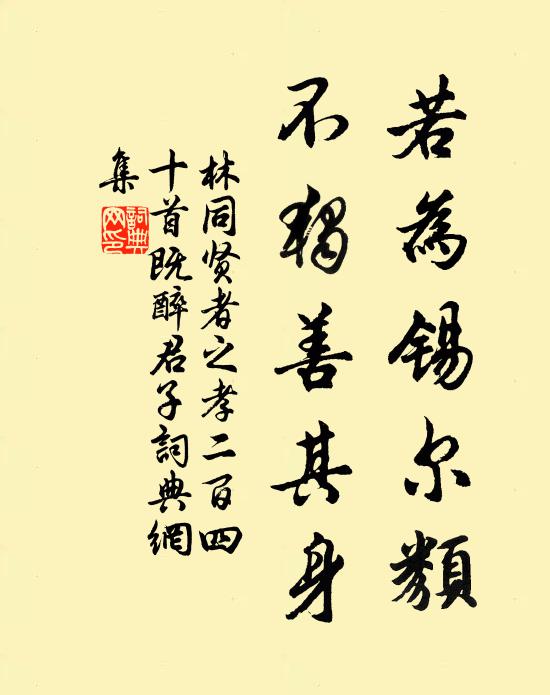 若為锡尔類
不獨善其身
林同贤者之孝二百四
十首既醉君子詞典網
集
詞典
网印